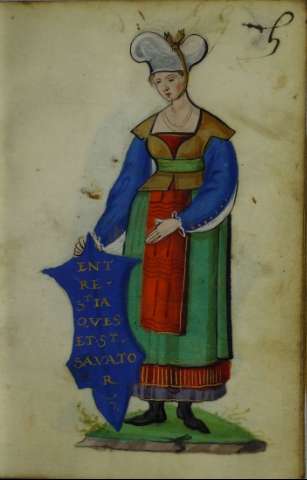 5
ENT
RE·
Sᵀ IA
QVES
ET·Sᵀ·
SAVATO
R